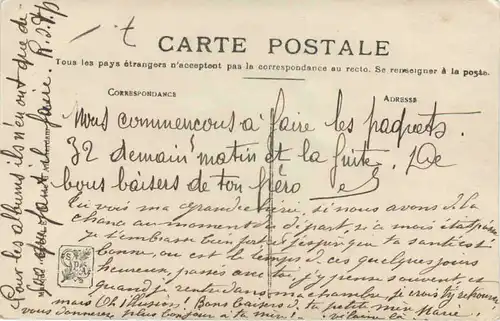 CARTE POSTALE
Tous les pays étrangers n'acceptent pas la correspondance au recto. Se renseigner à la poste.
CORRESPONDANCE
ADRESSE
Nous commencons à faire les paquets.
32 demain matin et la fuite. De
bons baisers de ton
Tu vois ma grande chérie, si nous avons de la
chance au moment du départ, si a mois
Je t'embrasse bien fort et j'espère que ta santé est si
bonne, ou est le temps de ces quelques jours
heureux, passés avec toi, j'y pense souvent, et
quand je rentre dans ma chambre, je crois t'y retrouver
mais Oh illusion! Bons baisers de ta petite mère Marie
vous donnerez bonjour à
Pour les albums ils n'en ont que de
faire. R.S.V.P